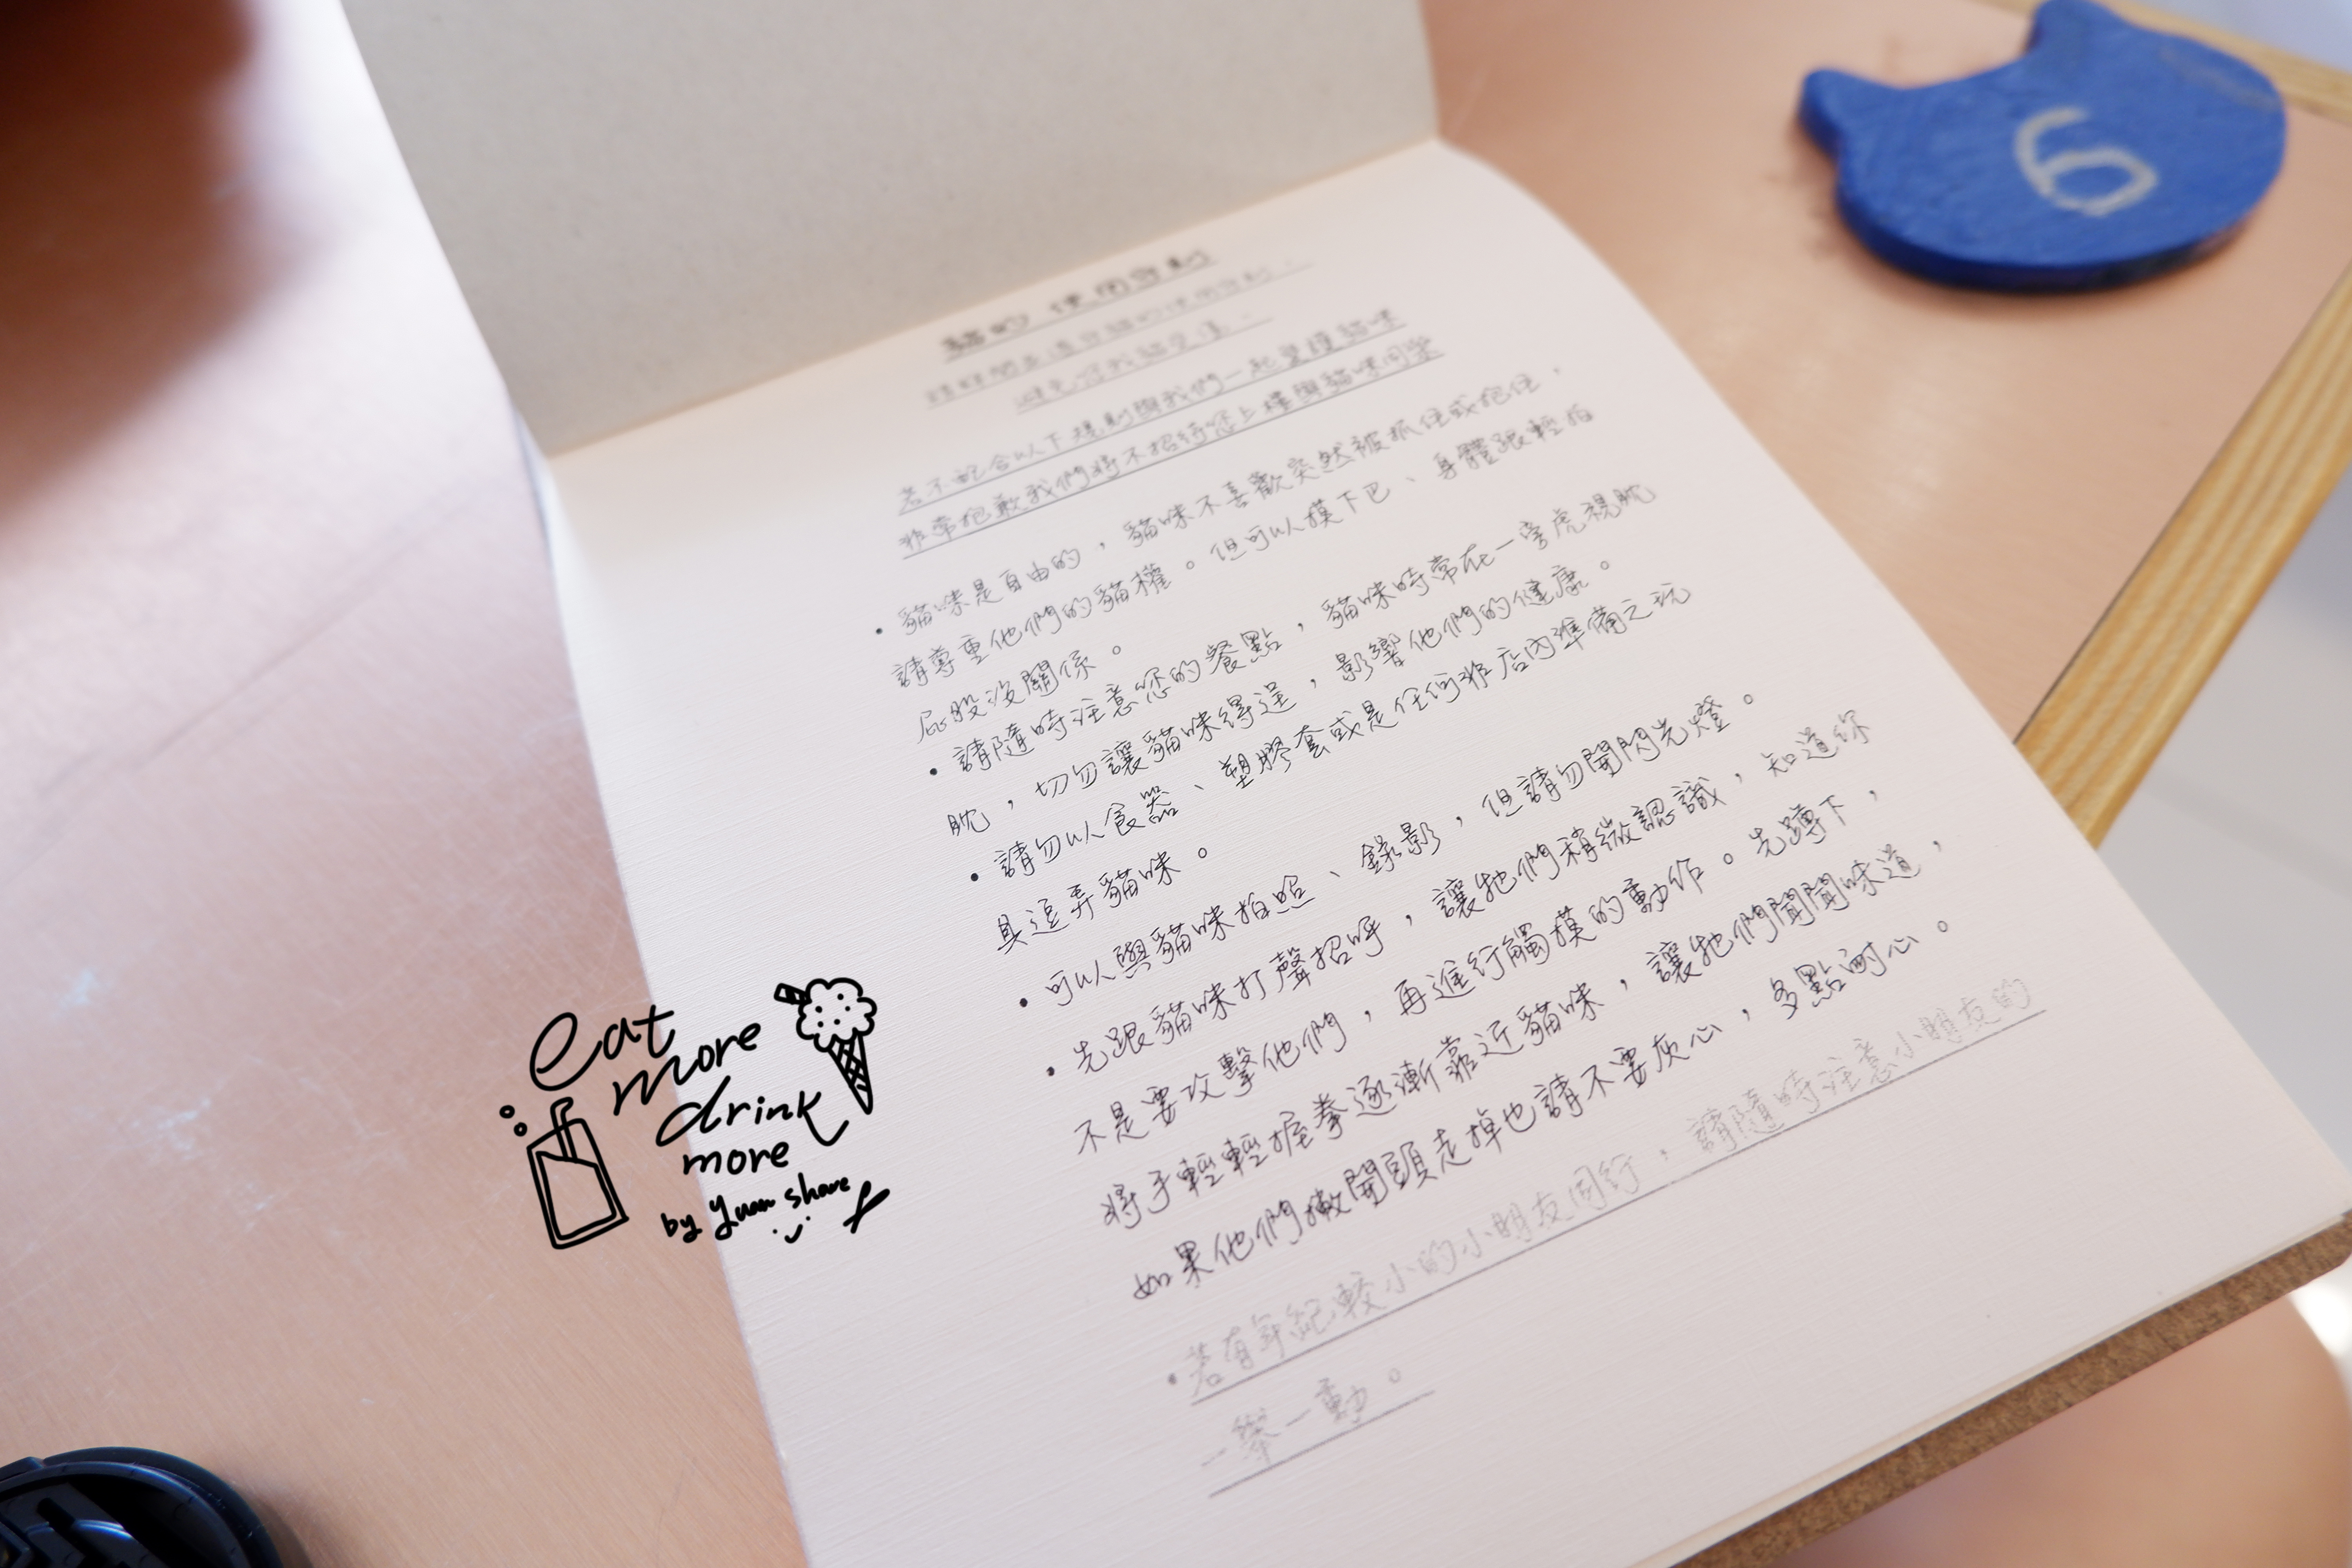 6
貓的 使用守則
若不配合以下規則與我們一起愛護貓咪
非常抱歉我們將不招待您上樓與貓咪同樂
・貓咪是自由的,貓咪不喜歡突然被抓住或抱住,
請尊重他們的貓權。但可以摸下巴、身體跟輕拍
屁股沒關係。
・請隨時注意您的餐點,貓咪時常在一旁虎視眈
眈,切勿讓貓咪得逞,影響他們的健康。
・請勿以食器、塑膠套或是任何非店內準備之玩
具逗弄貓咪。
・可以與貓咪拍照、錄影,但請勿開閃光燈。
・先跟貓咪打聲招呼,讓牠們稍微認識,知道你
不是要攻擊他們,再進行觸摸的動作。先蹲下,
將手輕輕握拳逐漸靠近貓咪,讓牠們聞聞味道,
如果他們撇開頭走掉也請不要灰心,多點耐心。
・若有年紀較小的小朋友同行,請隨時注意小朋友的
一舉一動。
eat
more
drink
more
by Yuan share